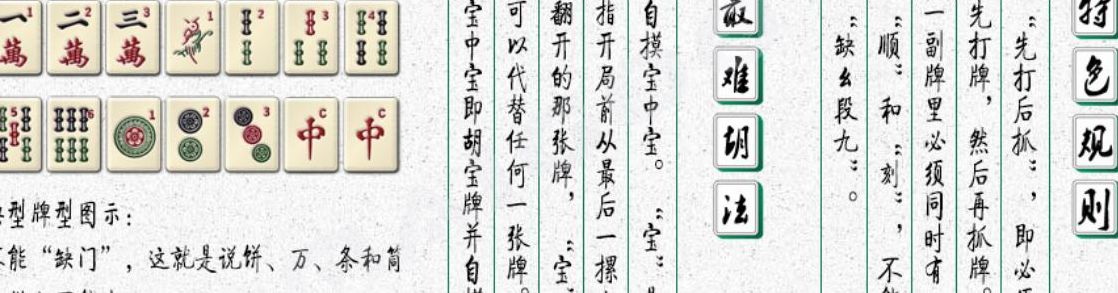 特色规则
“先打后抓”，即必
先打牌，然后再抓牌。
一副牌里必须同时有
“顺”和“刻”，不
“缺幺段九”。
最难胡法
自摸宝中宝。“宝”
指开局前从最后一摞
翻开的那张牌，“宝”
可以代替任何一张牌。
宝中宝即胡宝牌并自
一萬 二萬2 三萬3 1 2 3 4
5 6 1 2 3 中C 中C
型牌型图示：
能“缺门”，这就是说饼、万、条和筒